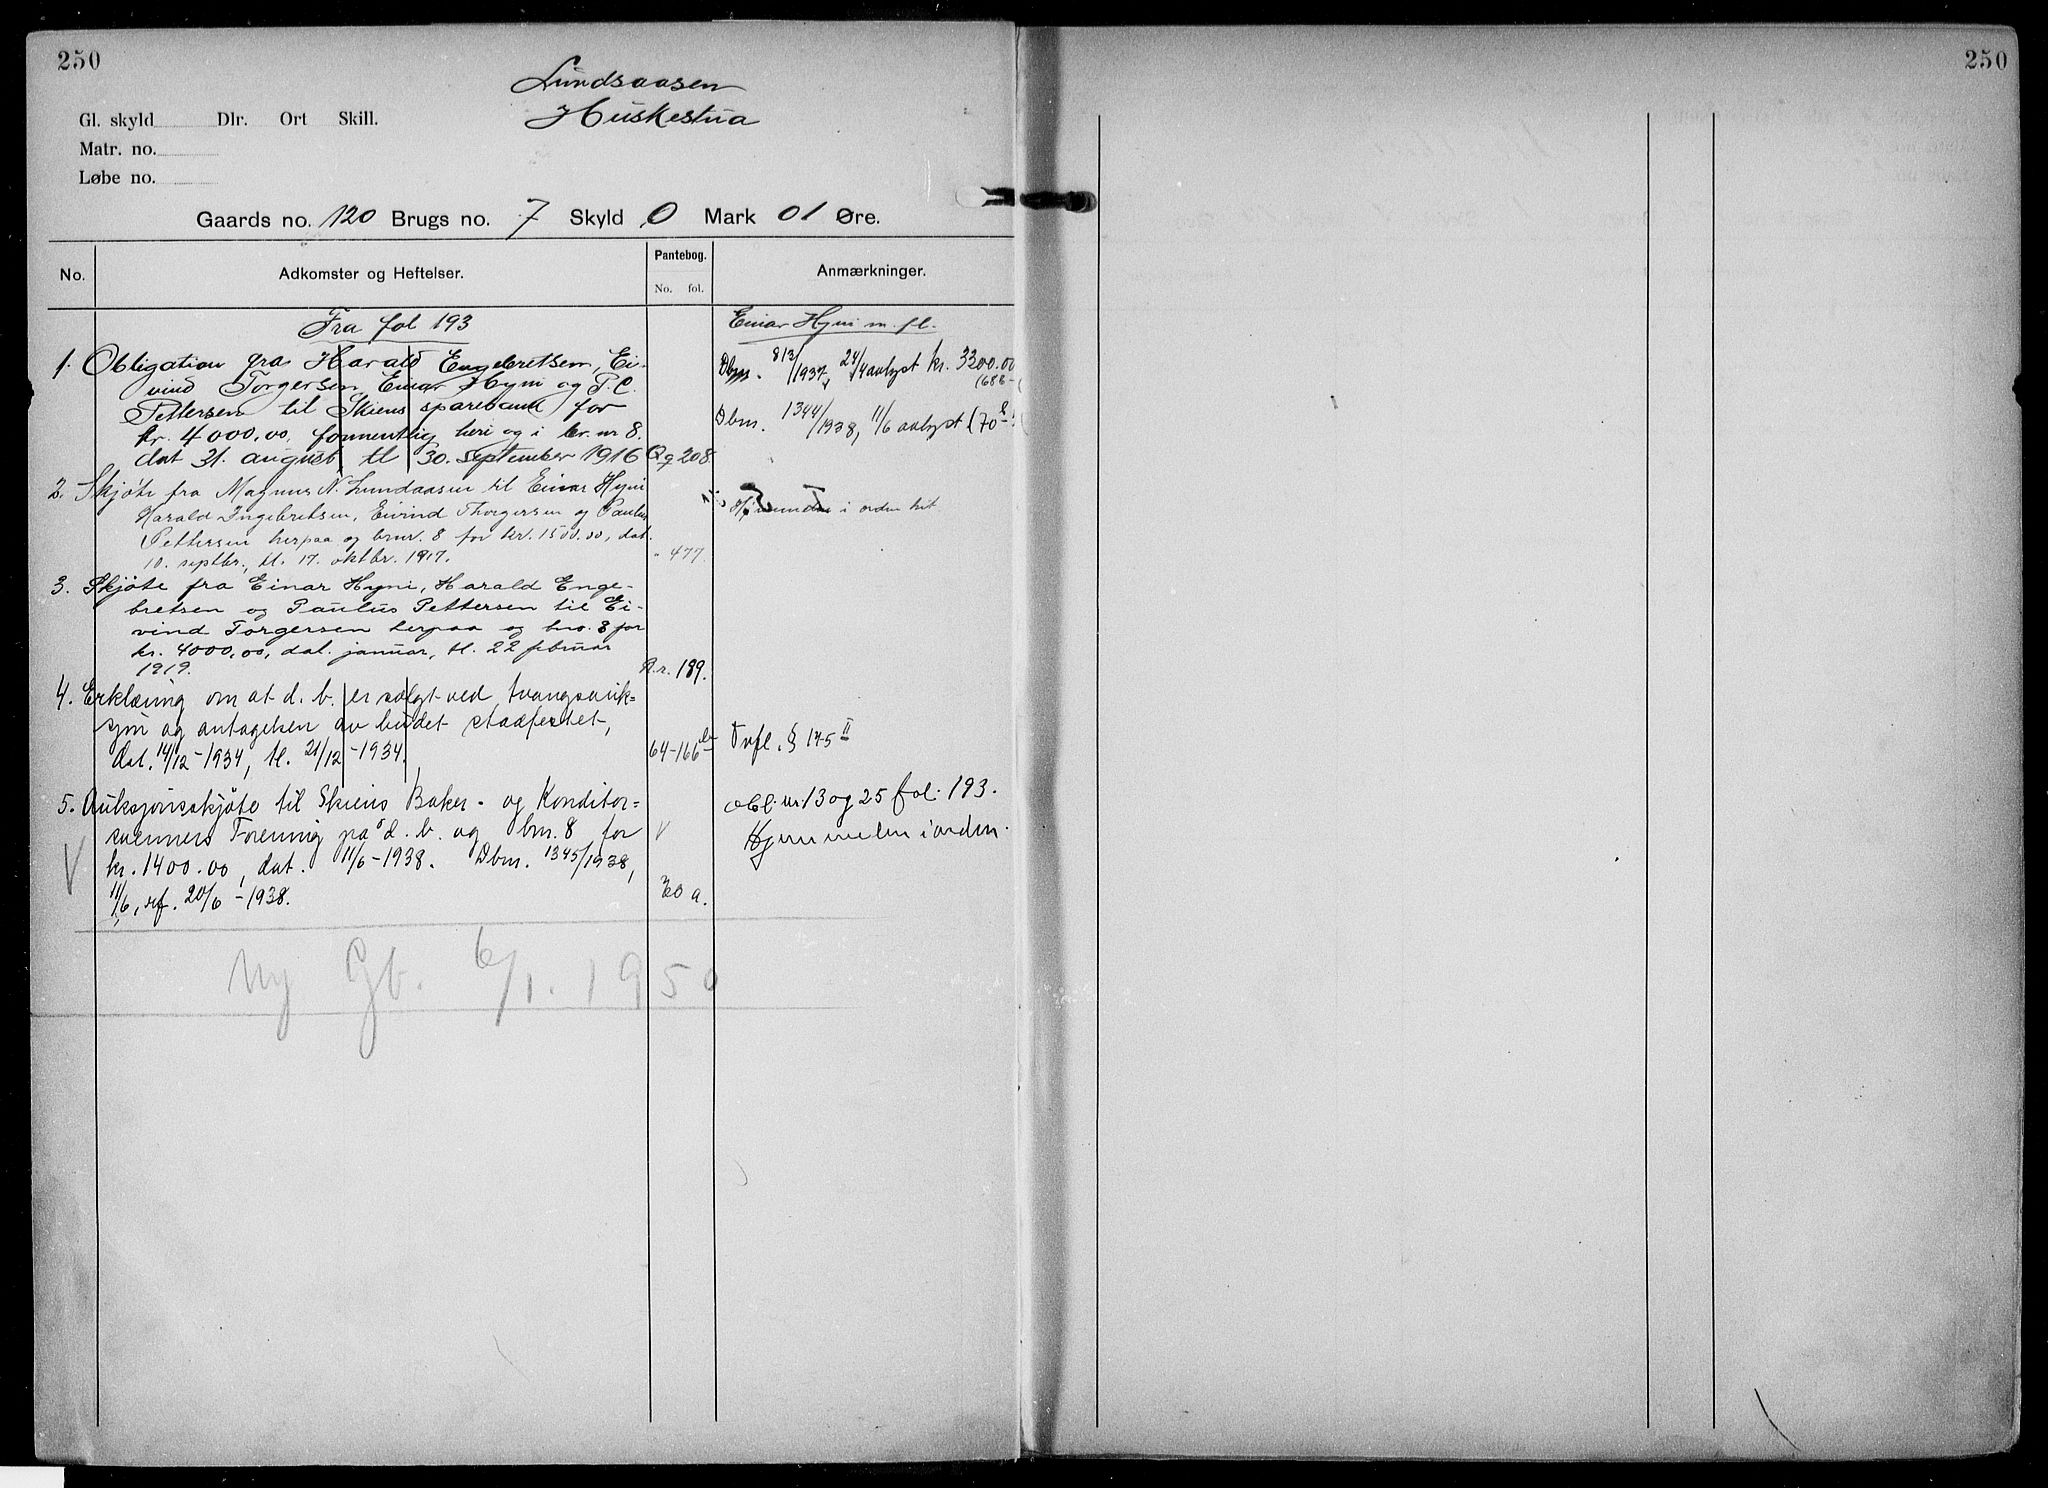 250
Lundsaasen
Huskestua
Gl. skyld Dlr. Ort Skill.
Matr. no.
Løbe no.
Gaards no. 120 Brugs no. 7 Skyld 0 Mark 01 Øre.
No. Adkomster og Heftelser. Pantebog. No. fol. Anmærkninger.
Fra fol 193
1. Obligation fra Harald Engebretsen, Ei-
vind Torgersen, Einar Hyni og P. C.
Pettersen til Skiens sparebank for
kr. 4000,00, formentlig heri og i br. nr 8.
dat 31. august tl 30. september 1916 Q q 208.
2. Skjöte fra Magnus N. Lundaasen til Einar Hyni
Harald Ingebretsen, Eivind Thorgersen og Paulus
Pettersen herpaa og brnr. 8 for kr. 1500.00, dat.
10. septbr., tl. 17. oktbr. 1917. " 477.
3. Skjöte fra Einar Hyni, Harald Enge-
bretsen og Paulus Pettersen til Ei-
vind Torgersen herpaa og bno. 8 for
kr. 4000,00, dat. januar, tl. 22 februar
1919. R. r. 189.
4. Erklæring om at d. b. er solgt ved tvangsauk=
sjon og antagelsen av budet stadfestet,
dat. 14/12-1934, tl. 21/12-1934. 64-166
5. Auksjonsskjöte til Skiens Baker- og Konditor=
svenners Forening på d. b. og bnr. 8 for
kr. 1400.00, dat. 11/6-1938. Dbnr. 1345/1938,
11/6, rf. 20/6-1938. 70 a.
Ny Gb. 6/1. 1950
Einar Hyni m. fl.
Dbnr. 813/1937, 24/4 avlyst kr. 3300.00
(688-
Dbnr. 1344/1938, 11/6 avlyst (70 b
Hjemmelen i orden hit
Tvfl. § 145 II
obl. nr. 13 og 25 fol. 193.
Hjemmelen i orden.
250